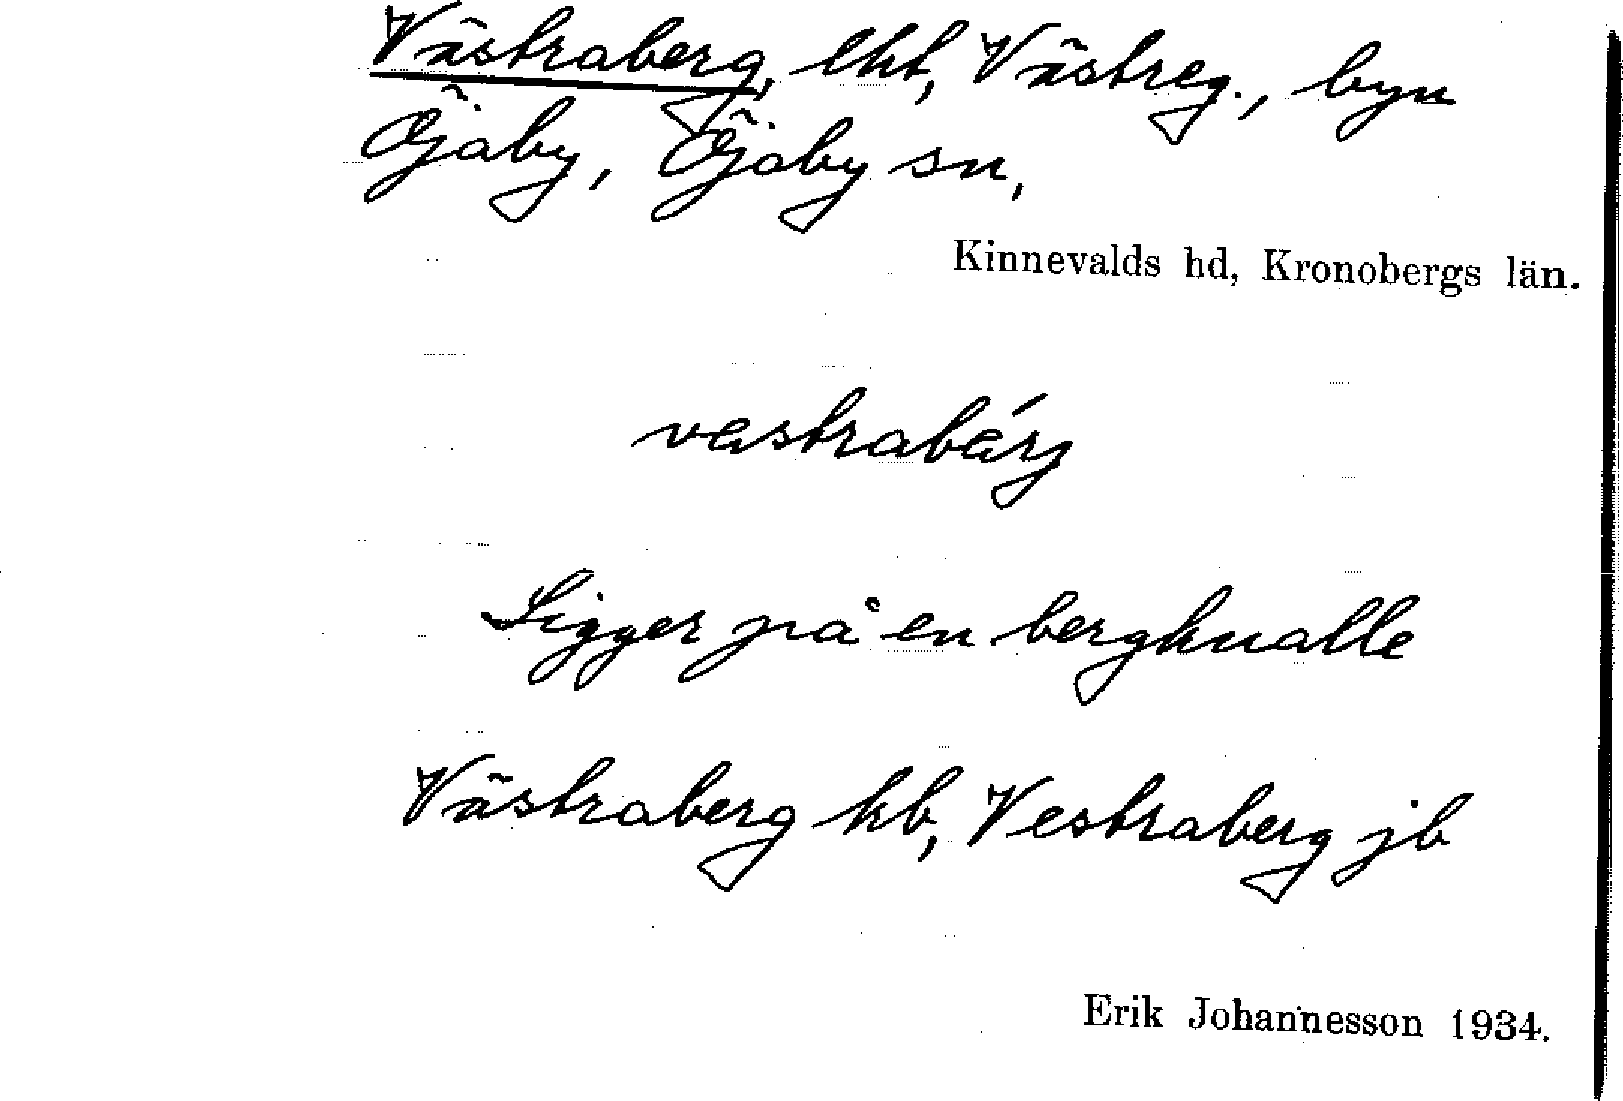 Västraberg, lht, Västreg., byn
Öjaby, Öjaby sn,
Kinnevalds hd, Kronobergs län.
västrabärj
Ligger på en bergknalle
Västraberg kb, Vestraberg jb
Erik Johannesson 1934.